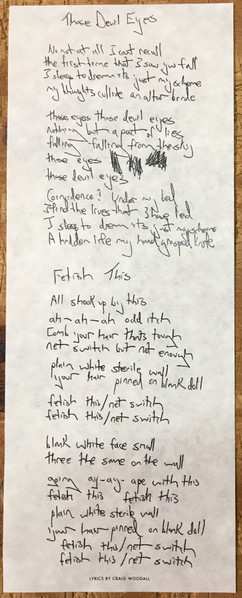 Those Devil Eyes
No not at all I cant recall
the first time that I saw you fall
I sleep to dream its just my scheme
my thoughts collide an altar bride
those eyes those devil eyes
nothing but a part of lies
falling falling from the sky
those eyes
those devil eyes
Coincidence? Under my bed
I find the lives that I have led
I sleep to dream its just my scheme
A hidden life my hand gripped knife
Fetish This
All shook up by this
ah-ah-ah odd itch
Comb your hair thats tough
net switch but not enough
plain white sterile wall
your hair pinned on blank doll
fetish this/net switch
fetish this/net switch
blank white face small
three the same on the wall
aping ay-ay-ape with this
fetish this fetish this
plain white sterile wall
your hair pinned on blank doll
fetish this/net switch
fetish this/net switch
LYRICS BY CRAIG WOODALL